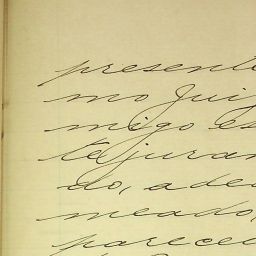 present
mo Jui
migo es
te juran
do, a de
meado,
parecei